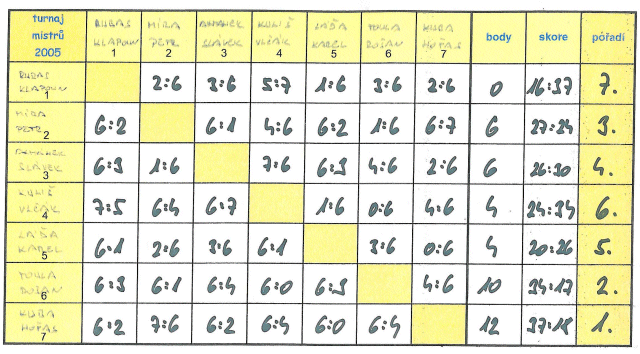 turnaj mistrů 2005
BUBAS KLAPOUN 1
MÍRA PETR 2
SLÁVEK 3
KULIŠ VLČÁK 4
LÁĎA KAREL 5
DUŠAN 6
KUBA HOŤAS 7
body
skore
pořadí
BUBAS KLAPOUN 1 2:6 3:6 5:7 1:6 3:6 2:6 0 16:37 7.
MÍRA PETR 2 6:2 6:1 4:6 6:2 1:6 6:7 6 27:24 3.
SLÁVEK 3 6:3 1:6 7:6 6:3 4:6 2:6 6 26:30 4.
KULIŠ VLČÁK 4 7:5 6:4 6:7 1:6 0:6 4:6 4 24:34 6.
KAREL 5 6:1 2:6 3:6 6:1 3:6 0:6 4 20:26 5.
DUŠAN 6 6:3 6:1 6:4 6:0 6:3 4:6 10 34:17 2.
KUBA HOŤAS 7 6:2 7:6 6:2 6:4 6:0 6:4 12 37:18 1.